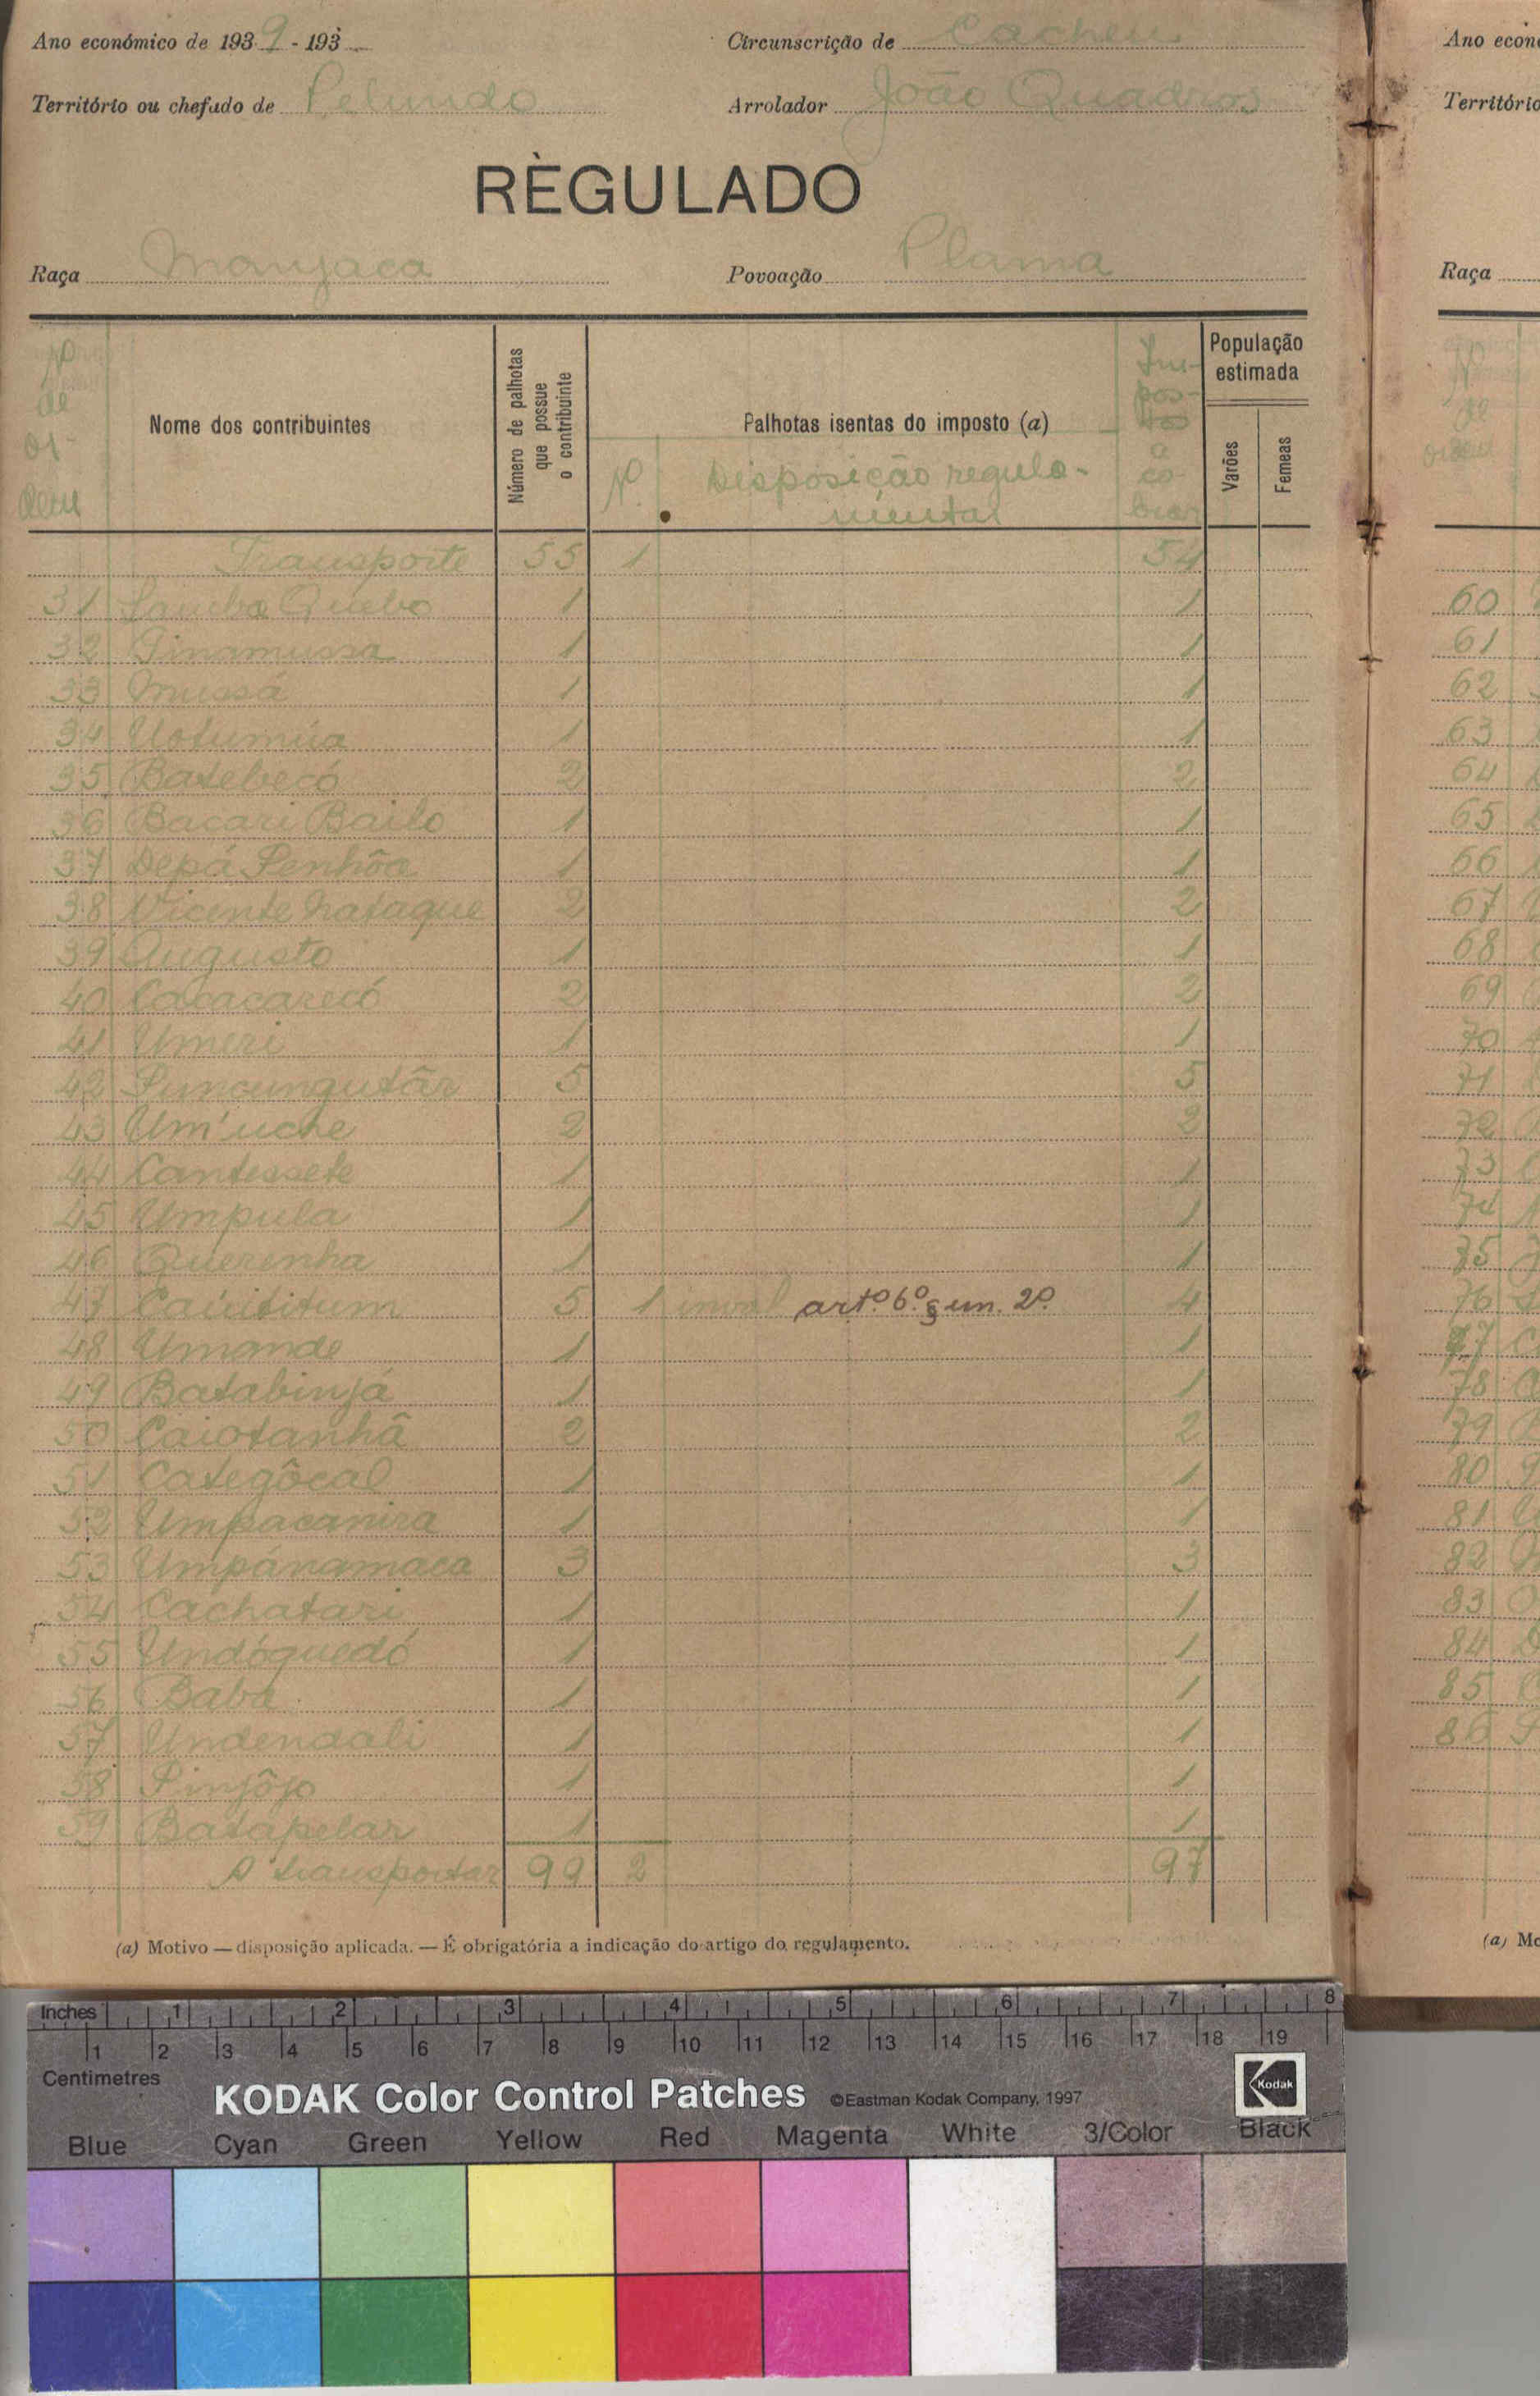 Ano económico de 1939 - 193
Circunscrição de Cacheu
Território ou chefado de Pelundo
Arrolador João Quadros
RÈGULADO
Raça Manjaca
Povoação Plama
Nº de ordem
Nome dos contribuintes
Número de palhotas que possue o contribuinte
Palhotas isentas do imposto (a)
Nº.
Disposição regulamentar
Impostos a cobrar
População estimada
Varões
Femeas
Transporte 55 1 54
31 Quebo 1 1
32 Pinamussa 1 1
33 Mussá 1 1
34 Uotumúa 1 1
35 Batebecó 2 2
36 Bacari Bailo 1 1
37 Depá Penhôa 1 1
38 Vicente Nataque 2 2
39 Augusto 1 1
40 Cacacarecó 2 2
41 Umeri 1 1
42 5 5
43 Um'uche 2 2
44 Cantessete 1 1
45 Umpula 1 1
46 Querenha 1 1
47 5 1 artº. 6º. § un. 2º. 4
48 Umande 1 1
49 Batabinjá 1 1
50 Caiotanhã 2 2
51 Categôcal 1 1
52 Umpacanira 1 1
53 Umpánamaca 3 3
54 Cachatari 1 1
55 Undóguedó 1 1
56 Baba 1 1
57 Undendali 1 1
58 Pinjôjo 1 1
59 Batapelar 1 1
A transportar 99 2 97
(a) Motivo — disposição aplicada. — É obrigatória a indicação do artigo do regulamento.
Ano econ
Território
Raça
60
61
62
63
64
65
66
67
68
69
70
71
72
73
74
75
76
77
78
79
80
81
82
83
84
85
86
(a) Mo
Inches 1 2 3 4 5 6 7 8
1 2 3 4 5 6 7 8 9 10 11 12 13 14 15 16 17 18 19
Centimetres
KODAK Color Control Patches ©Eastman Kodak Company, 1997
Kodak
Blue Cyan Green Yellow Red Magenta White 3/Color Black